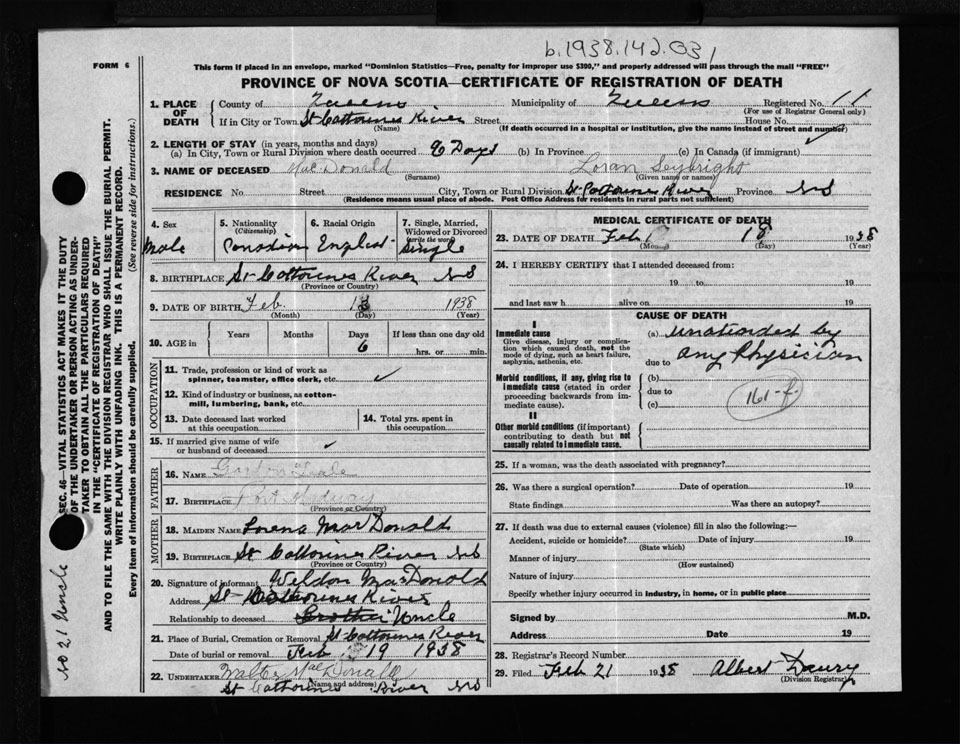 b.1938.142.031
FORM 6
This form if placed in an envelope, marked "Dominion Statistics—Free, penalty for improper use $300," and properly addressed will pass through the mail "FREE"
PROVINCE OF NOVA SCOTIA—CERTIFICATE OF REGISTRATION OF DEATH
1. PLACE OF DEATH County of Queens Municipality of Queens Registered No. 11
(For use of Registrar General only)
If in City or Town St Catherines River Street House No.
(Name) (If death occurred in a hospital or institution, give the name instead of street and number)
2. LENGTH OF STAY (in years, months and days)
(a) In City, Town or Rural Division where death occurred 6 Days (b) In Province (c) In Canada (if immigrant)
3. NAME OF DECEASED MacDonald Loran Seybright
(Surname) (Given name or names)
RESIDENCE No. Street City, Town or Rural Division St Catherines River Province NS
(Residence means usual place of abode. Post Office Address for residents in rural parts not sufficient)
4. Sex 5. Nationality 6. Racial Origin 7. Single, Married, Widowed or Divorced
(Citizenship) (write the word)
Male Canadian English Single
8. BIRTHPLACE St Catherines River NS
(Province or Country)
9. DATE OF BIRTH Feb. 1938
(Month) (Day) (Year)
10. AGE in Years Months Days If less than one day old
6 hrs. or min.
OCCUPATION
11. Trade, profession or kind of work as spinner, teamster, office clerk, etc. ✓
12. Kind of industry or business, as cotton-mill, lumbering, bank, etc.
13. Date deceased last worked at this occupation 14. Total yrs. spent in this occupation
15. If married give name of wife or husband of deceased ✓
FATHER
16. NAME Gordon
17. BIRTHPLACE Port Medway
(Province or Country)
MOTHER
18. MAIDEN NAME Lorena MacDonald
19. BIRTHPLACE St Catherines River NS
(Province or Country)
20. Signature of informant Weldon MacDonald
Address St Catherines River
Relationship to deceased Brother Uncle
21. Place of Burial, Cremation or Removal St Catherines River
Date of burial or removal Feb 19 1938
22. UNDERTAKER Walter MacDonald
(Name and address)
St Catherines River NS
MEDICAL CERTIFICATE OF DEATH
23. DATE OF DEATH Feb 18 1938
(Month) (Day) (Year)
24. I HEREBY CERTIFY that I attended deceased from:
19 to 19
and last saw h alive on 19
CAUSE OF DEATH
I
Immediate cause (a) Unattended by
Give disease, injury or complication which caused death, not the mode of dying, such as heart failure, asphyxia, asthenia, etc.
due to any Physician
Morbid conditions, if any, giving rise to immediate cause (stated in order proceeding backwards from immediate cause).
(b)
due to
(c)
161-f
II
Other morbid conditions (if important) contributing to death but not causally related to immediate cause.
25. If a woman, was the death associated with pregnancy?
26. Was there a surgical operation? Date of operation 19
State findings Was there an autopsy?
27. If death was due to external causes (violence) fill in also the following:—
Accident, suicide or homicide? Date of injury 19
(State which)
Manner of injury
(How sustained)
Nature of injury
Specify whether injury occurred in industry, in home, or in public place
Signed by M.D.
Address Date 19
28. Registrar's Record Number
29. Filed Feb 21 1938 Albert Daury
(Division Registrar)
SEC. 46—VITAL STATISTICS ACT MAKES IT THE DUTY
OF THE UNDERTAKER OR PERSON ACTING AS UNDER-
TAKER TO OBTAIN ALL THE PARTICULARS REQUIRED
IN THE "CERTIFICATE OF REGISTRATION OF DEATH"
AND TO FILE THE SAME WITH THE DIVISION REGISTRAR WHO SHALL ISSUE THE BURIAL PERMIT.
WRITE PLAINLY WITH UNFADING INK. THIS IS A PERMANENT RECORD.
Every item of information should be carefully supplied. (See reverse side for instructions.)
No 21 Uncle